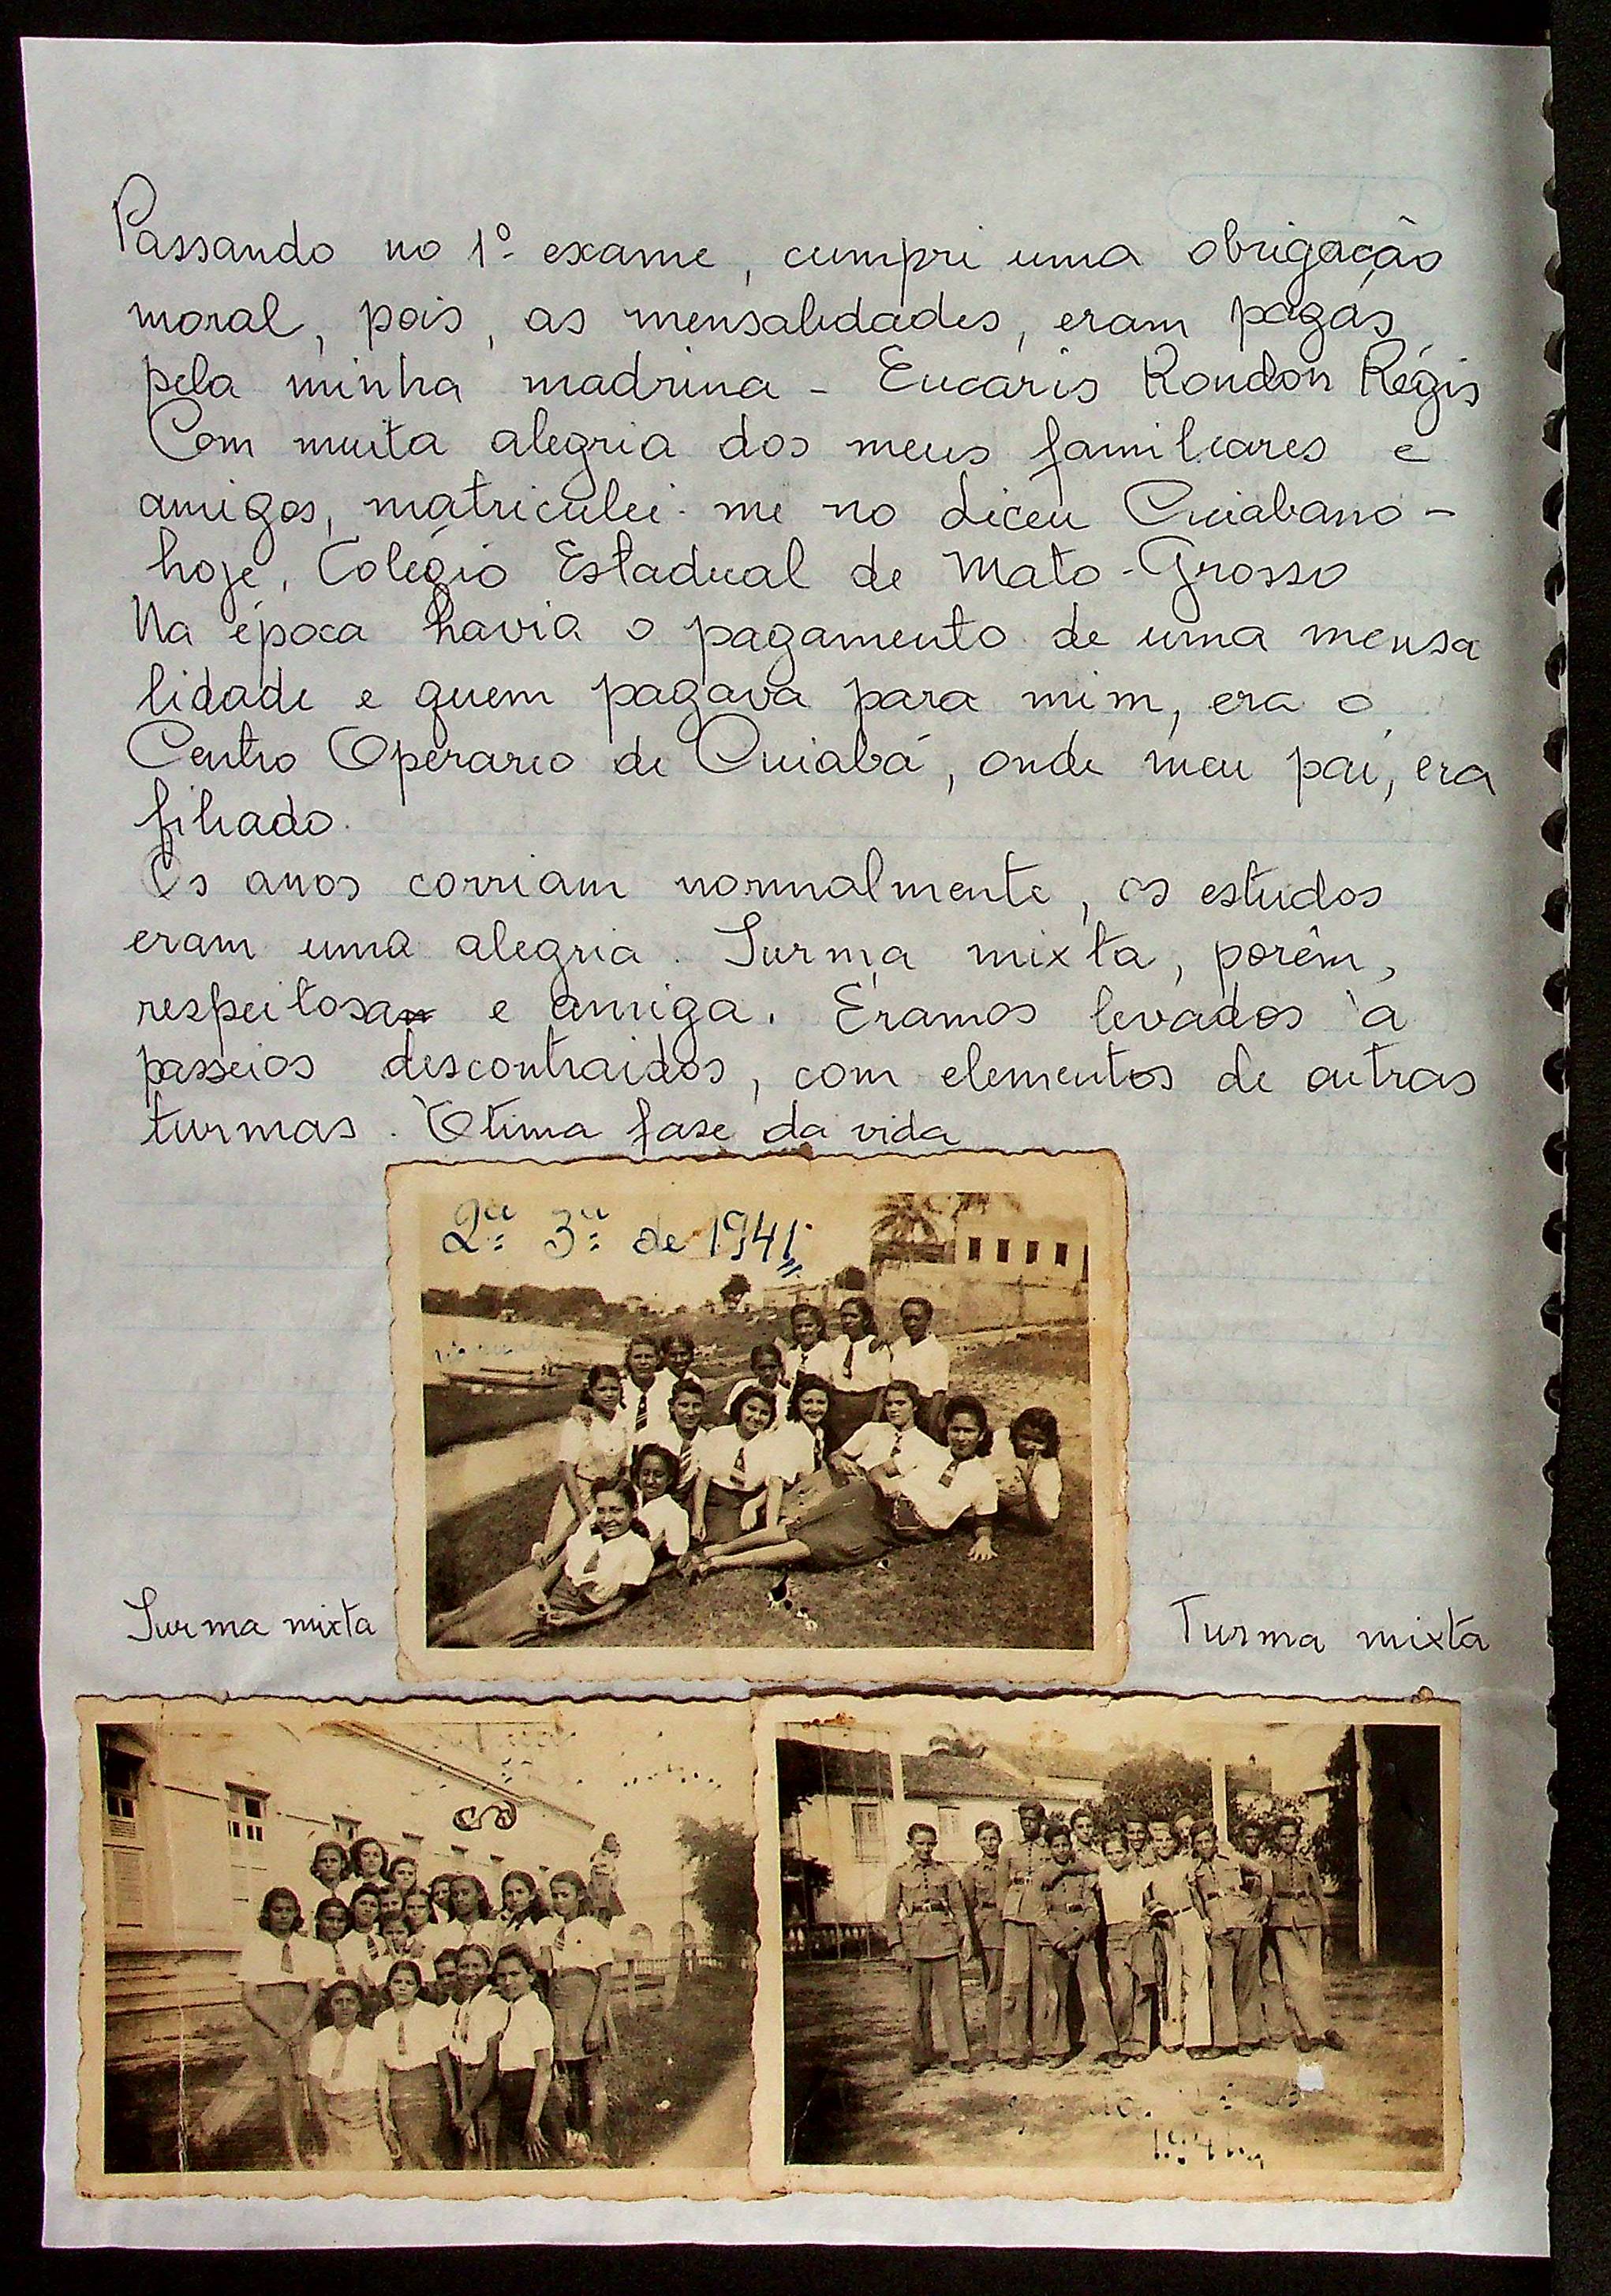 Passando no 1º exame, cumpri uma obrigação
moral, pois, as mensalidades, eram pagas
pela minha madrina - Eucaris Rondon Régis
Com muita alegria dos meus familiares e
amigos, matriculei-me no Liceu Cuiabano -
hoje, Colégio Estadual de Mato-Grosso
Na época havia o pagamento de uma mensa
lidade e quem pagava para mim, era o
Centro Operario de Cuiabá, onde meu pai, era
filiado.
Os anos corriam normalmente, os estudos
eram uma alegria. Turma mixta, porêm,
respeitosa e amiga. Eramos levados à
passeios descontraidos, com elementos de outras
turmas. Otima fase da vida
2ª 3ª de 1941
Turma mixta
Turma mixta